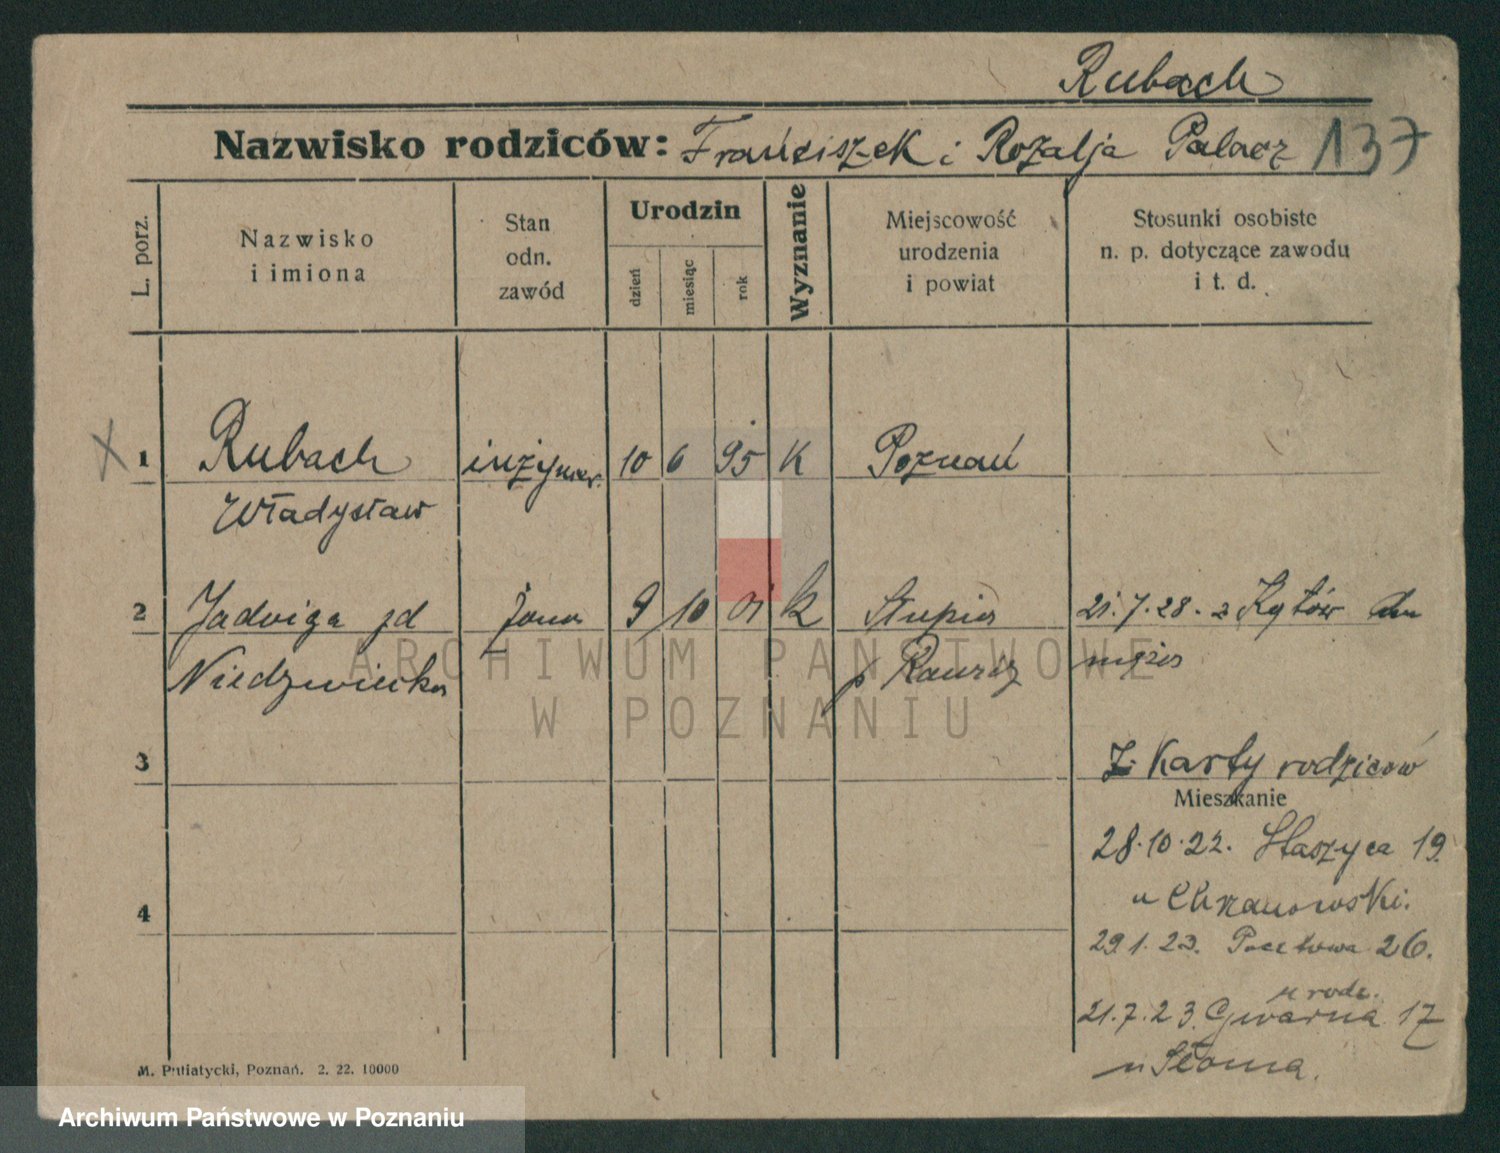 Rubach
Nazwisko rodziców: Franciszek i Rozalja Palacz 137
L. porz.
Nazwisko
i imiona
Stan
odn.
zawód
Urodzin
dzień
miesiąc
rok
Wyznanie
Miejscowość
urodzenia
i powiat
Stosunki osobiste
n. p. dotyczące zawodu
i t. d.
X 1 Rubach inżynier. 10 6 95 K Poznań
Władysław
2 Jadwiga żona 9 10 01 k Słupia 21.7.28. z Kątów do
Niedzwiecka p Rawicz męża
3
Z Karty rodziców
Mieszkanie
28.10.22. Staszyca 19.
u Chrzanowski.
4
29.1.23. Pocztowa 26.
u rodz.
21.7.23. Gwarna 17
u Słoma.
M. Putiatycki, Poznań. 2. 22. 10000
ARCHIWUM PAŃSTWOWE
W POZNANIU
Archiwum Państwowe w Poznaniu